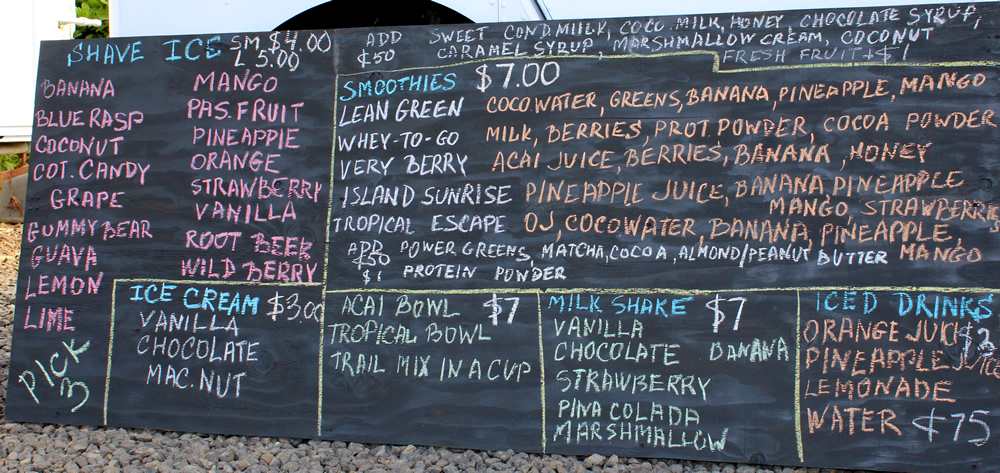 SHAVE ICE SM. $4.00
L 5.00
BANANA
BLUE RASP
COCONUT
COT. CANDY
GRAPE
GUMMY BEAR
GUAVA
LEMON
LIME
PICK
3
MANGO
PAS. FRUIT
PINEAPPIE
ORANGE
STRAWBERRY
VANILLA
ROOT BEER
WILD BERRY
ADD SWEET COND.MIILK, COCO. MILK, HONEY, CHOCOLATE SYRUP,
¢50 CARAMEL SYRUP, MARSHMALLOW CREAM, COCONUT
FRESH FRUIT+$1
SMOOTHIES $7.00
LEAN GREEN COCOWATER, GREENS, BANANA, PINEAPPLE, MANGO
WHEY-TO-GO MILK, BERRIES, PROT. POWDER, COCOA POWDER
VERY BERRY ACAI JUICE, BERRIES, BANANA, HONEY
ISLAND SUNRISE PINEAPPLE JUICE, BANANA, PINEAPPLE
MANGO, STRAWBERRIES
TROPICAL ESCAPE OJ, COCOWATER, BANANA, PINEAPPLE,
MANGO
ADD POWER GREENS, MATCHA, COCOA, ALMOND/PEANUT BUTTER
¢50
$1 PROTEIN POWDER
ICE CREAM $3.00
VANILLA
CHOCOLATE
MAC. NUT
ACAI BOWL $7
TROPICAL BOWL
TRAIL MIX IN A CUP
MILK SHAKE $7
VANILLA
CHOCOLATE BANANA
STRAWBERRY
PINA COLADA
MARSHMALLOW
ICED DRINKS
ORANGE JUICE
PINEAPPLE JUICE
LEMONADE
WATER ¢75